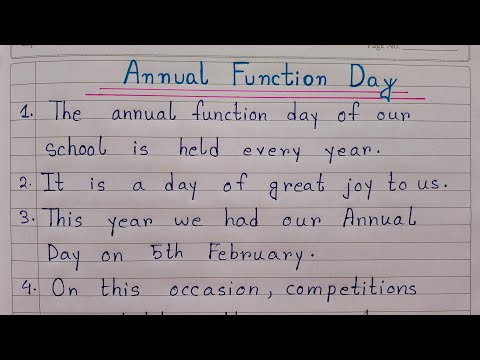 Page No.
Annual Function Day
1. The annual function day of our
school is held every year.
2. It is a day of great joy to us.
3. This year we had our Annual
Day on 5th February.
4. On this occasion, competitions